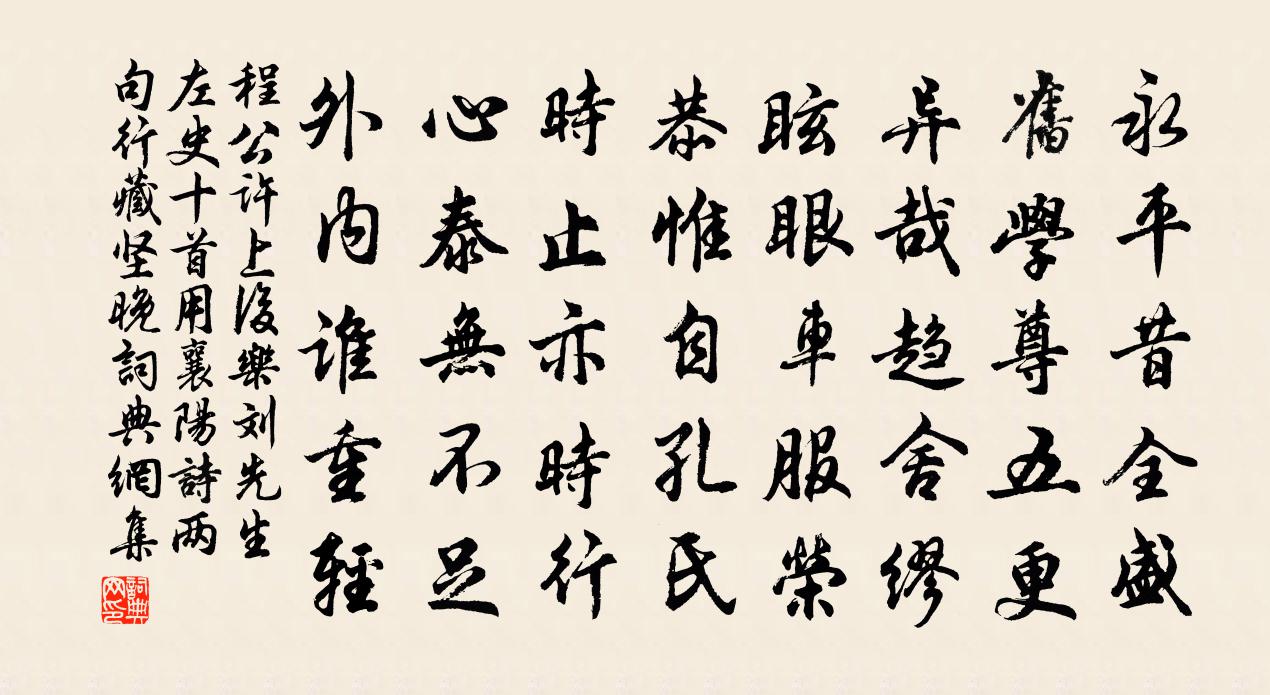 永平昔全盛
舊學尊五更
异哉趋舍缪
眩眼車服榮
恭惟自孔氏
時止亦時行
心泰無不足
外内誰重輕
程公许上後樂刘先生
左史十首用襄陽詩两
句行藏坚晚詞典網集
詞典网印